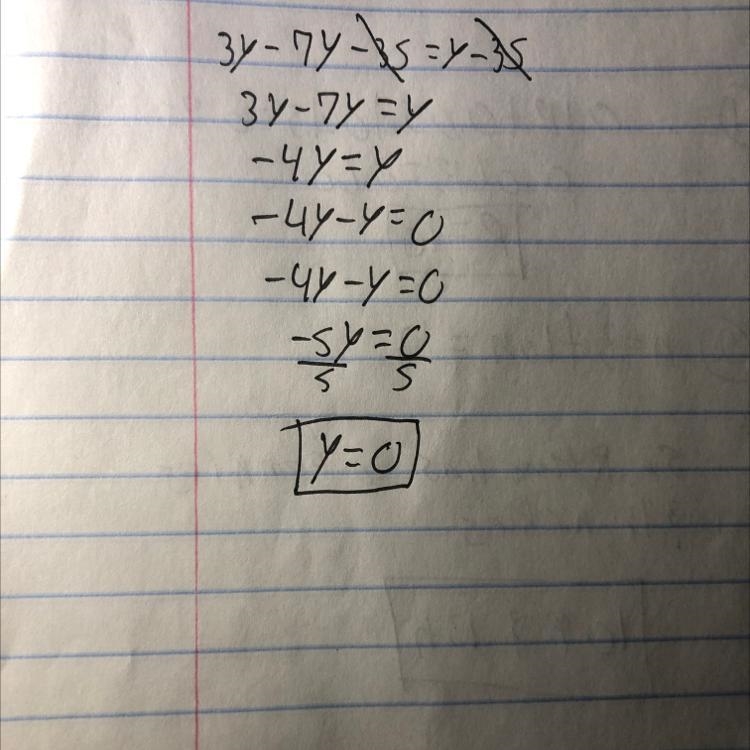 3y - 7y - 35 = y - 35
3y - 7y = y
-4y = y
-4y - y = 0
-4y - y = 0
-5y = 0
5 5
y = 0